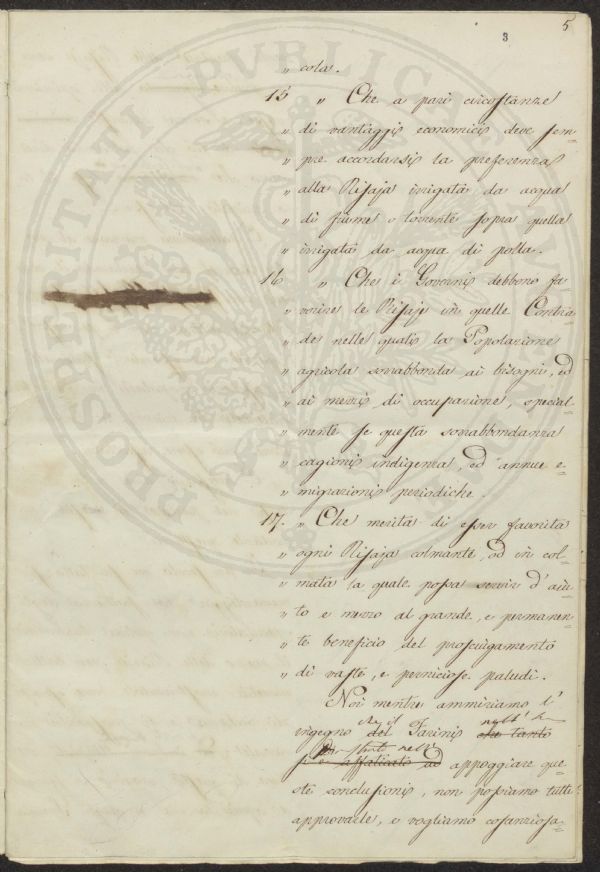 5
3
" cola.
15 " Che a pari circostanze
" di vantaggi economici deve sem=
" pre accordarsi la preferenza
" alla Risaja irrigata da acqua
" di fiume o torrente sopra quella
" irrigata da acqua di polla.
16 " Che i Governi debbono fa=
" vorire le Risaje in quelle Contra=
" de nelle quali la Popolazione
" agricola sovrabbonda ai bisogni, ed
" ai mezzi di occupazione, special=
" mente se questa sovrabbondanza
" cagioni indigenza, ed annue e=
" migrazioni periodiche.
17. " Che merita di esser favorita
" ogni Risaja colmante, od in col=
" mata la quale possa servir d'aiu=
" to e mezzo al grande, e permanen=
" te beneficio del prosciugamento
" di vaste, e perniciose paludi.
Noi mentre ammiriamo l'
ingegno del Farini che tanto
si è affaticato ad appoggiare que=
ste conclusioni, non possiamo tutte
approvarle, e vogliamo coscenziosa=
PROSPERITATI PVBLICAE